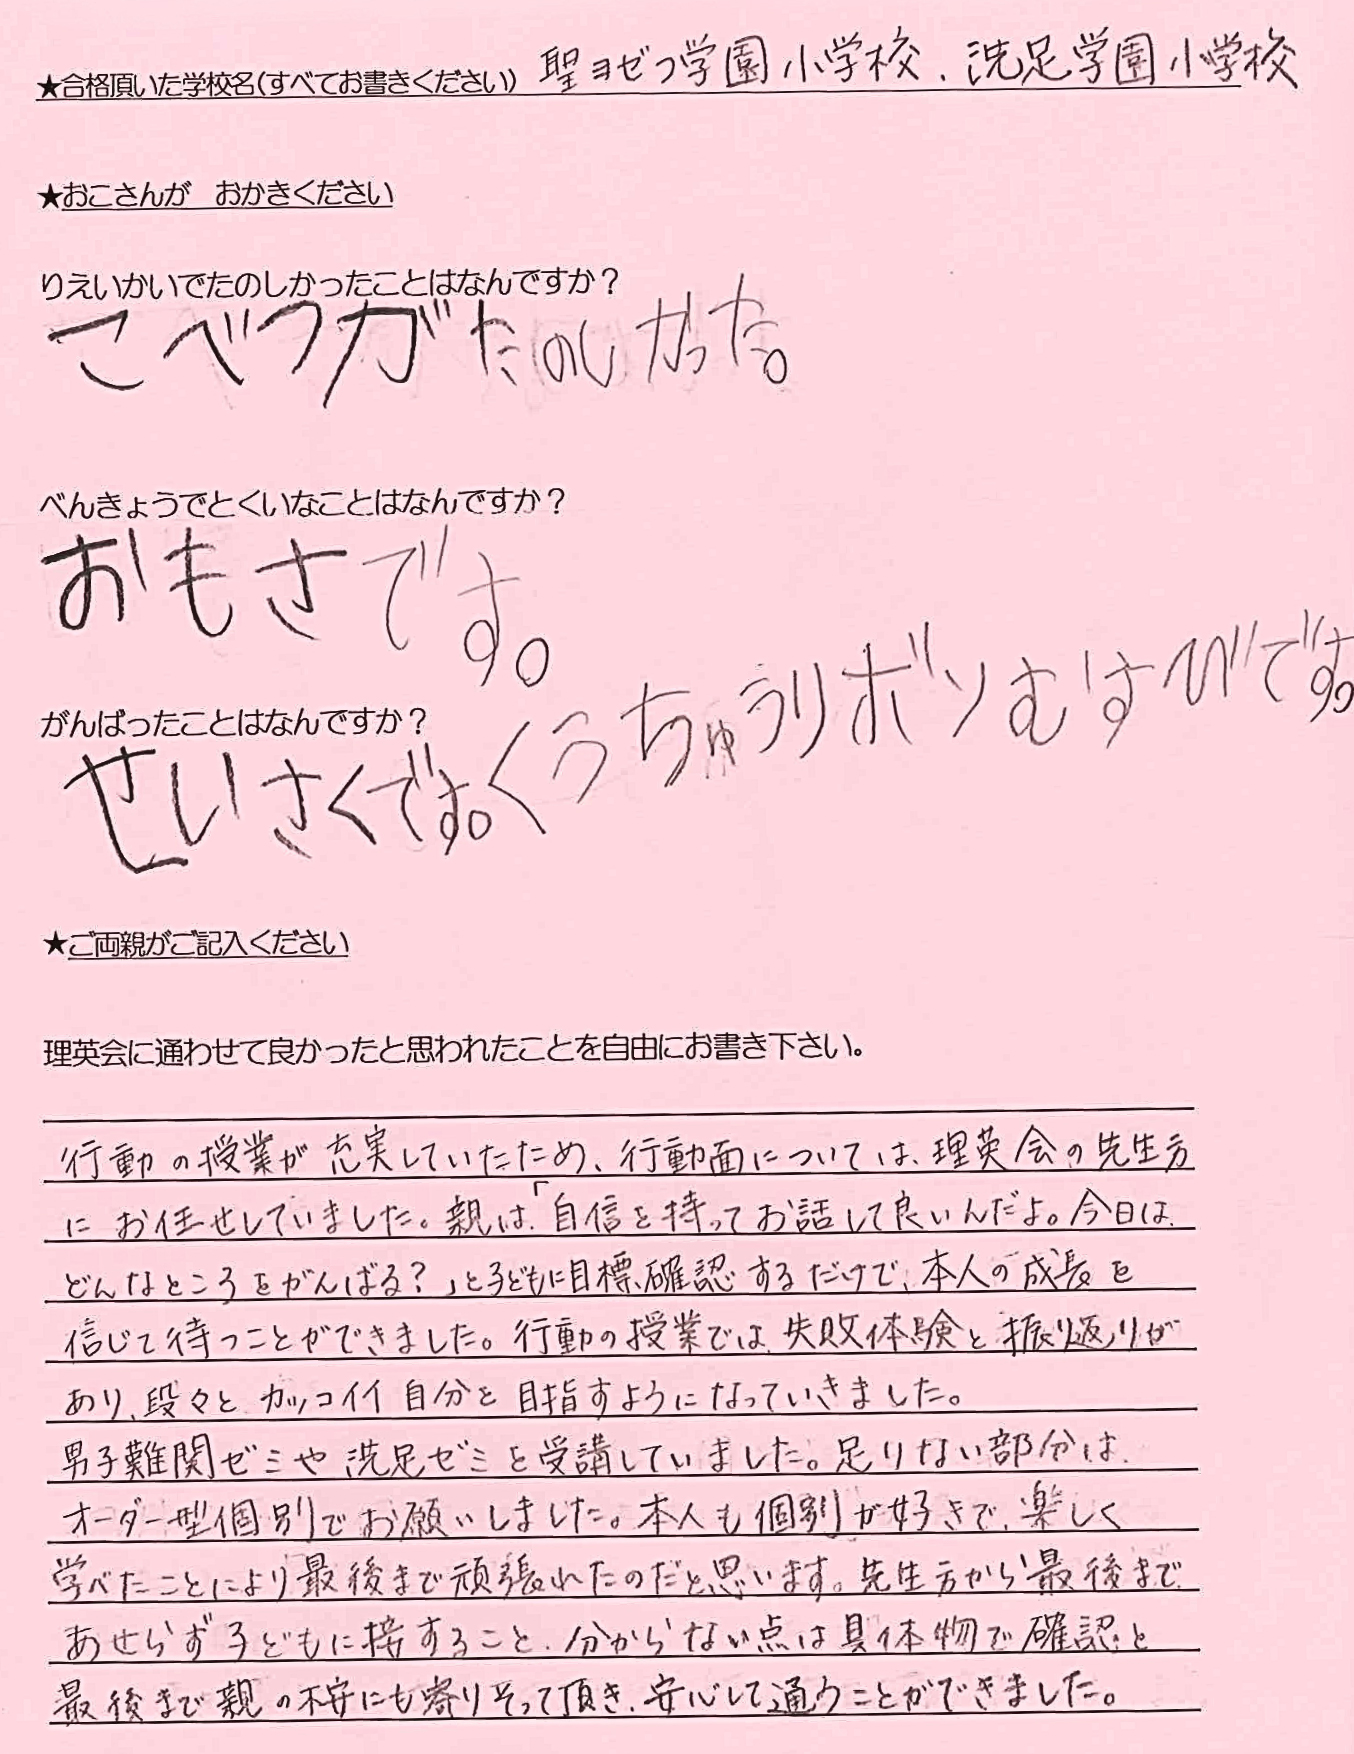 ★合格頂いた学校名(すべてお書きください) 聖ヨゼフ学園小学校、洗足学園小学校
★おこさんが おかきください
りえいかいでたのしかったことはなんですか？
こべつがたのしかった。
べんきょうでとくいなことはなんですか？
おもさです。
がんばったことはなんですか？
せいさくです。くうちゅうリボンむすびです。
★ご両親がご記入ください
理英会に通わせて良かったと思われたことを自由にお書き下さい。
行動の授業が充実していたため、行動面については、理英会の先生方
にお任せしていました。親は、「自信を持ってお話して良いんだよ。今日は、
どんなところをがんばる？」と子どもに目標、確認するだけで、本人の成長を
信じて待つことができました。行動の授業では、失敗体験と振り返りが
あり、段々とカッコイイ自分を目指すようになっていきました。
男子難関ゼミや洗足ゼミを受講していました。足りない部分は、
オーダー型個別でお願いしました。本人も個別が好きで、楽しく
学べたことにより最後まで頑張れたのだと思います。先生方から最後まで、
あせらず子どもに接すること、分からない点は具体物で確認と
最後まで親の不安にも寄りそって頂き、安心して通うことができました。